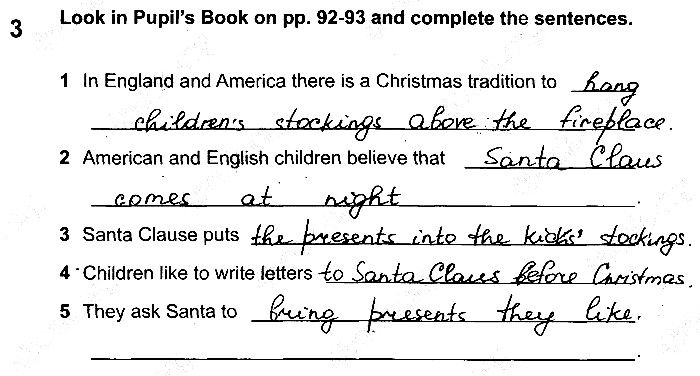 3 Look in Pupil's Book on pp. 92-93 and complete the sentences.
1 In England and America there is a Christmas tradition to hang
children's stockings above the fireplace.
2 American and English children believe that Santa Claus
comes at night.
3 Santa Clause puts the presents into the kids' stockings.
4 Children like to write letters to Santa Claus before Christmas.
5 They ask Santa to bring presents they like.